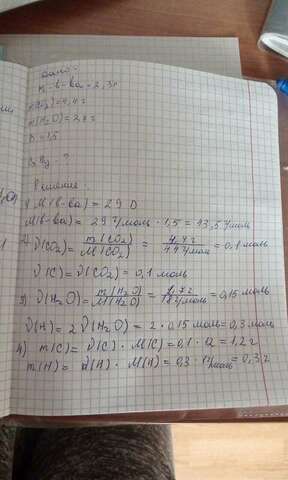 Дано:
m в-ва = 2,3г
m(CO₂) = 4,4 г
m(H₂O) = 2,7 г
D = 1,5
Решение:
1) M(в-ва) = 29 D
M(в-ва) = 29 г/моль · 1,5 = 43,5 г/моль
2) ν(CO₂) = m(CO₂)/M(CO₂) = 4,4 г/44 г/моль = 0,1 моль
ν(C) = ν(CO₂) = 0,1 моль
3) ν(H₂O) = m(H₂O)/M(H₂O) = 2,7 г/18 г/моль = 0,15 моль
ν(H) = 2 ν(H₂O) = 2 · 0,15 моль = 0,3 моль
4) m(C) = ν(C) · M(C) = 0,1 · 12 = 1,2 г
m(H) = ν(H) · M(H) = 0,3 · 1 г/моль = 0,3 г